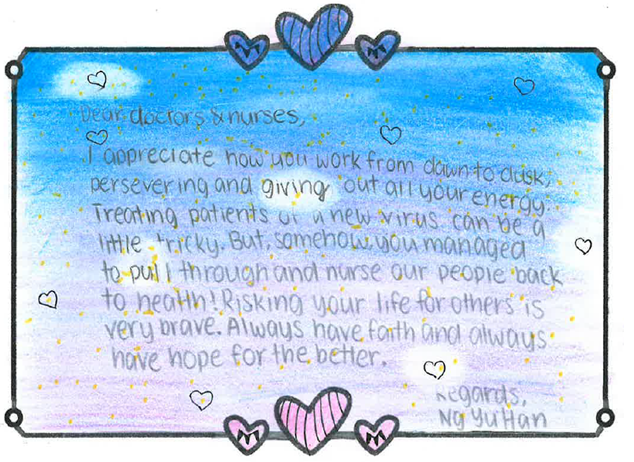 Dear doctors & nurses,
I appreciate how you work from dawn to dusk,
persevering and giving out all your energy.
Treating patients of a new virus can be a
little tricky. But, somehow you managed
to pull through and nurse our people back
to health! Risking your life for others is
very brave. Always have faith and always
have hope for the better.
Regards,
Ng Yu Han